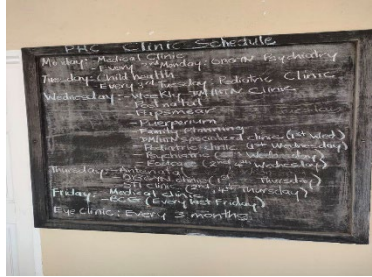 PHC Clinic Schedule
Monday: Medical Clinic
- Every 3rd Monday: OBGYN Psychiatry
Tuesday: Child health
- Every 3rd Tuesday: Pediatric Clinic
Wednesday: - High Risk DM/HTN Clinic
- Post natal
- Papsmear
- Puerperium
- Family Planning
- DM/HTN specialed clinic (1st Wed)
- Pediatric clinic (1st Wednesday)
- Psychiatric (Wednesday)
- Footcare (2nd Wednesday)
Thursday: - Antenatal
- OBGYN clinic (1st Thursday)
- STI Clinic (2nd, 4th Thursday)
Friday: - Medical clinic
- BCG (Every last Friday)
Eye Clinic: Every 3 months